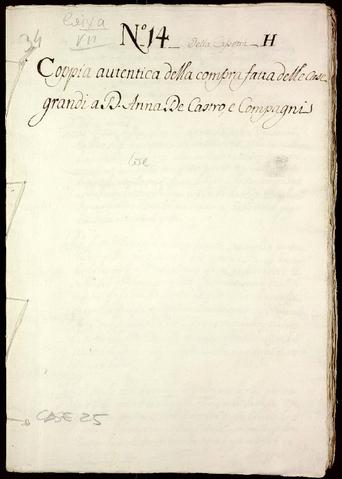 34 Caixa
VII
Nº 14 Della Capomi H
Coppia autentica della compra fatta delle Case
grandi a D. Anna De Castro, e Compagni
Case
CASE 25